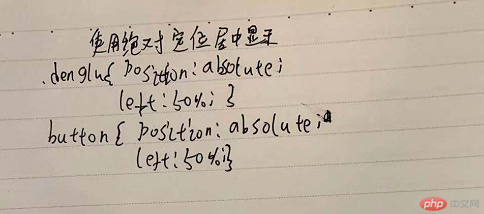 使用绝对定位居中显示
.denglu{ position: absolute;
left: 50%; }
button{ position: absolute;
left: 50%;}
php 中文网